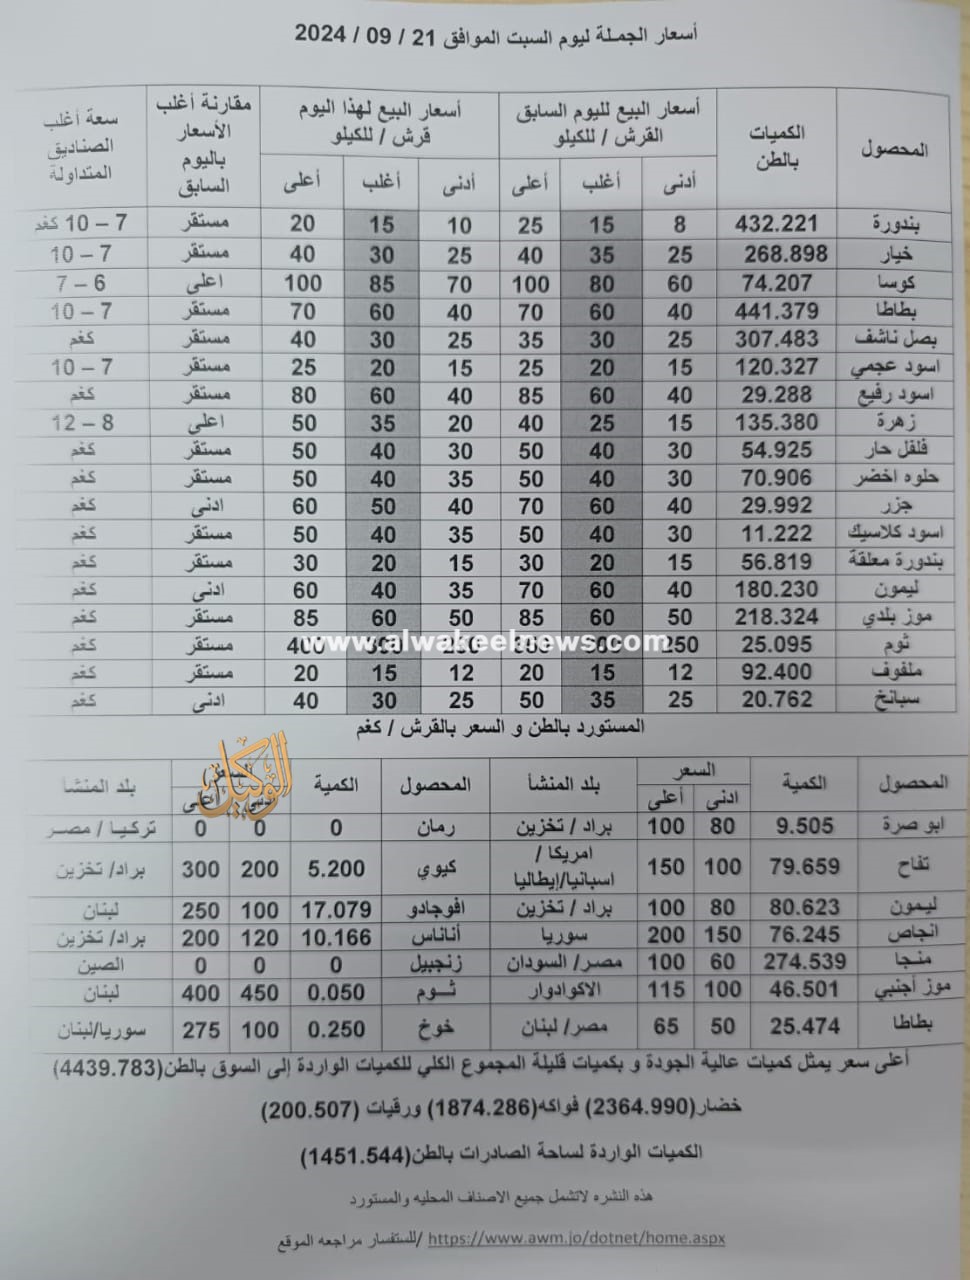 أسعار الجملة ليوم السبت الموافق 21 / 09 / 2024
المحصول الكميات بالطن أسعار البيع لليوم السابق القرش / للكيلو أسعار البيع لهذا اليوم قرش / للكيلو مقارنة أغلب الأسعار باليوم السابق سعة أغلب الصناديق المتداولة
أدنى أغلب أعلى أدنى أغلب أعلى
بندورة 432.221 8 15 25 10 15 20 مستقر 7 – 10 كغم
خيار 268.898 25 35 40 25 30 40 مستقر 7 – 10
كوسا 74.207 60 80 100 70 85 100 اعلى 6 – 7
بطاطا 441.379 40 60 70 40 60 70 مستقر 7 – 10
بصل ناشف 307.483 25 30 35 25 30 40 مستقر كغم
اسود عجمي 120.327 15 20 25 15 20 25 مستقر 7 – 10
اسود رفيع 29.288 40 60 85 40 60 80 مستقر كغم
زهرة 135.380 15 25 40 20 35 50 اعلى 8 – 12
فلفل حار 54.925 30 40 50 30 40 50 مستقر كغم
حلوه اخضر 70.906 30 40 50 35 40 50 مستقر كغم
جزر 29.992 40 60 70 40 50 60 ادنى كغم
اسود كلاسيك 11.222 30 40 50 35 40 50 مستقر كغم
بندورة معلقة 56.819 15 20 30 15 20 30 مستقر كغم
ليمون 180.230 40 60 70 35 40 60 ادنى كغم
موز بلدي 218.324 50 60 85 50 60 85 مستقر كغم
ثوم 25.095 250 400 مستقر كغم
www.alwakeelnews.com
ملفوف 92.400 12 15 20 12 15 20 مستقر كغم
سبانخ 20.762 25 35 50 25 30 40 ادنى كغم
المستورد بالطن و السعر بالقرش / كغم
الوكيل
المحصول الكمية السعر بلد المنشأ المحصول الكمية بلد المنشأ
ادنى أعلى أعلى
ابو صرة 9.505 80 100 براد / تخزين رمان 0 0 0 تركيا / مصر
تفاح 79.659 100 150 امريكا / اسبانيا/إيطاليا كيوي 5.200 200 300 براد/ تخزين
ليمون 80.623 80 100 براد / تخزين افوجادو 17.079 100 250 لبنان
انجاص 76.245 150 200 سوريا أناناس 10.166 120 200 براد/ تخزين
منجا 274.539 60 100 مصر/ السودان زنجبيل 0 0 0 الصين
موز أجنبي 46.501 100 115 الاكوادوار ثـــوم 0.050 450 400 لبنان
بطاطا 25.474 50 65 مصر/ لبنان خوخ 0.250 100 275 سوريا/لبنان
أعلى سعر يمثل كميات عالية الجودة و بكميات قليلة المجموع الكلي للكميات الواردة إلى السوق بالطن(4439.783)
خضار(2364.990) فواكه(1874.286) ورقيات (200.507)
الكميات الواردة لساحة الصادرات بالطن(1451.544)
هذه النشره لاتشمل جميع الاصناف المحليه والمستورد
https://www.awm.jo/dotnet/home.aspx /للستفسار مراجعه الموقع